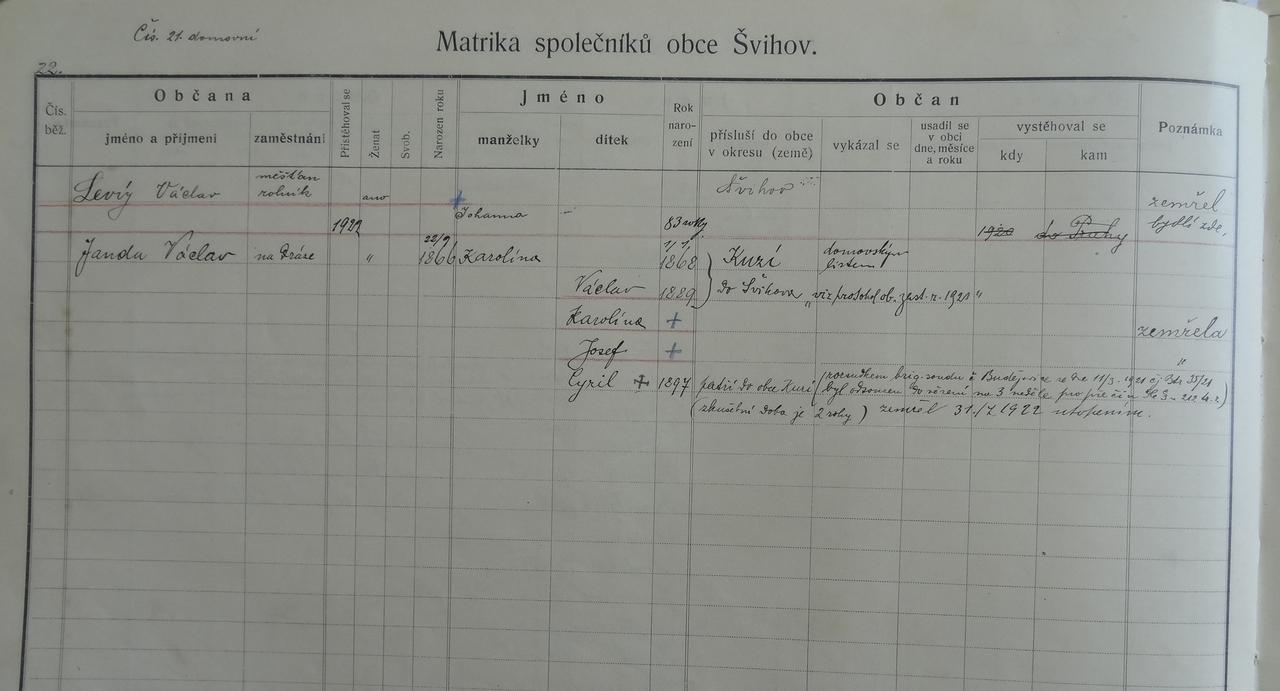 Čís. 21. domovní
Matrika společníků obce Švihov.
22.
Čís. běž.
Občana
jméno a příjmení
zaměstnání
Přistěhoval se
Ženat
Svob.
Narozen roku
Jméno
manželky
dítek
Rok naro- zení
Občan
přísluší do obce v okresu (země)
vykázal se
usadil se v obci dne, měsíce a roku
vystěhoval se
kdy
kam
Poznámka
Levý Václav měšťan rolník ano Švihov zemřel
Johanna 83 roky 1920 do Prahy bydlí zde,
1922
Janda Václav na Dráze " 22/9 1866 Karolína 1/1. 1868 Kuzí domovským listem
Václav 1889 do Švihova "viz protokol ob. zast. r. 1921"
Karolína + zemřela
Josef + "
Cyril + 1897 patří do obce Kuzí (rozsudkem soudu Budějovice ze dne 11/3. 1921 čj. 35/21
byl odsouzen do vězení na 3 neděle pro přečin
(zkušební doba je 2 roky) zemřel 31./7 1922 utopením.